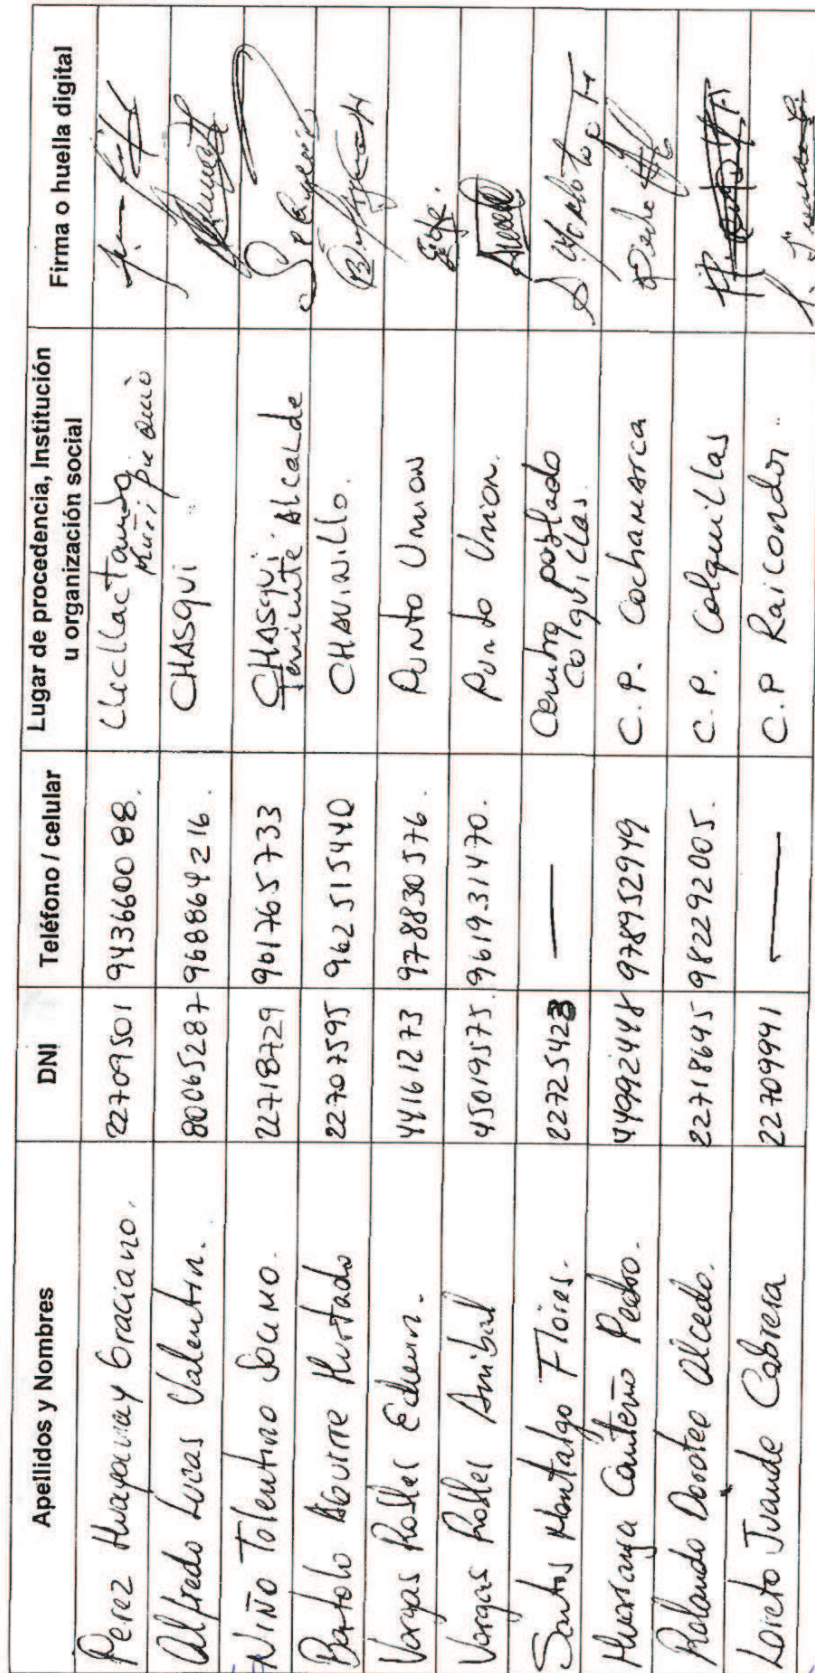 Apellidos y Nombres DNI Teléfono / celular Lugar de procedencia, Institución u organización social Firma o huella digital
Perez Huayanay Graciano. 22709501 943660088.
Alfredo Lucas Valentin. 80065287 968864216. CHASQUI
NIÑO Tolentino 22718729 961765733 CHASQUI. Teniente Alcalde
Bartolo Aguirre Hurtado 22707595 962515440 CHAVINILLO.
Vargas Robles Edwin. 44161273 978830576. Punto Union
Vargas Robles Anibal 45019575. 961931470. Punto Union.
Santos Montalgo Flores. 22725423 — Centro poblado Colquillas.
Pedro. 44092448 978952949 C.P. Cochamarca
Rolando Doroteo Alcedo. 22718645 982292005. C.P. Colquillas
Loreto Juande Cabrera 22709941 — C.P Raicondor.